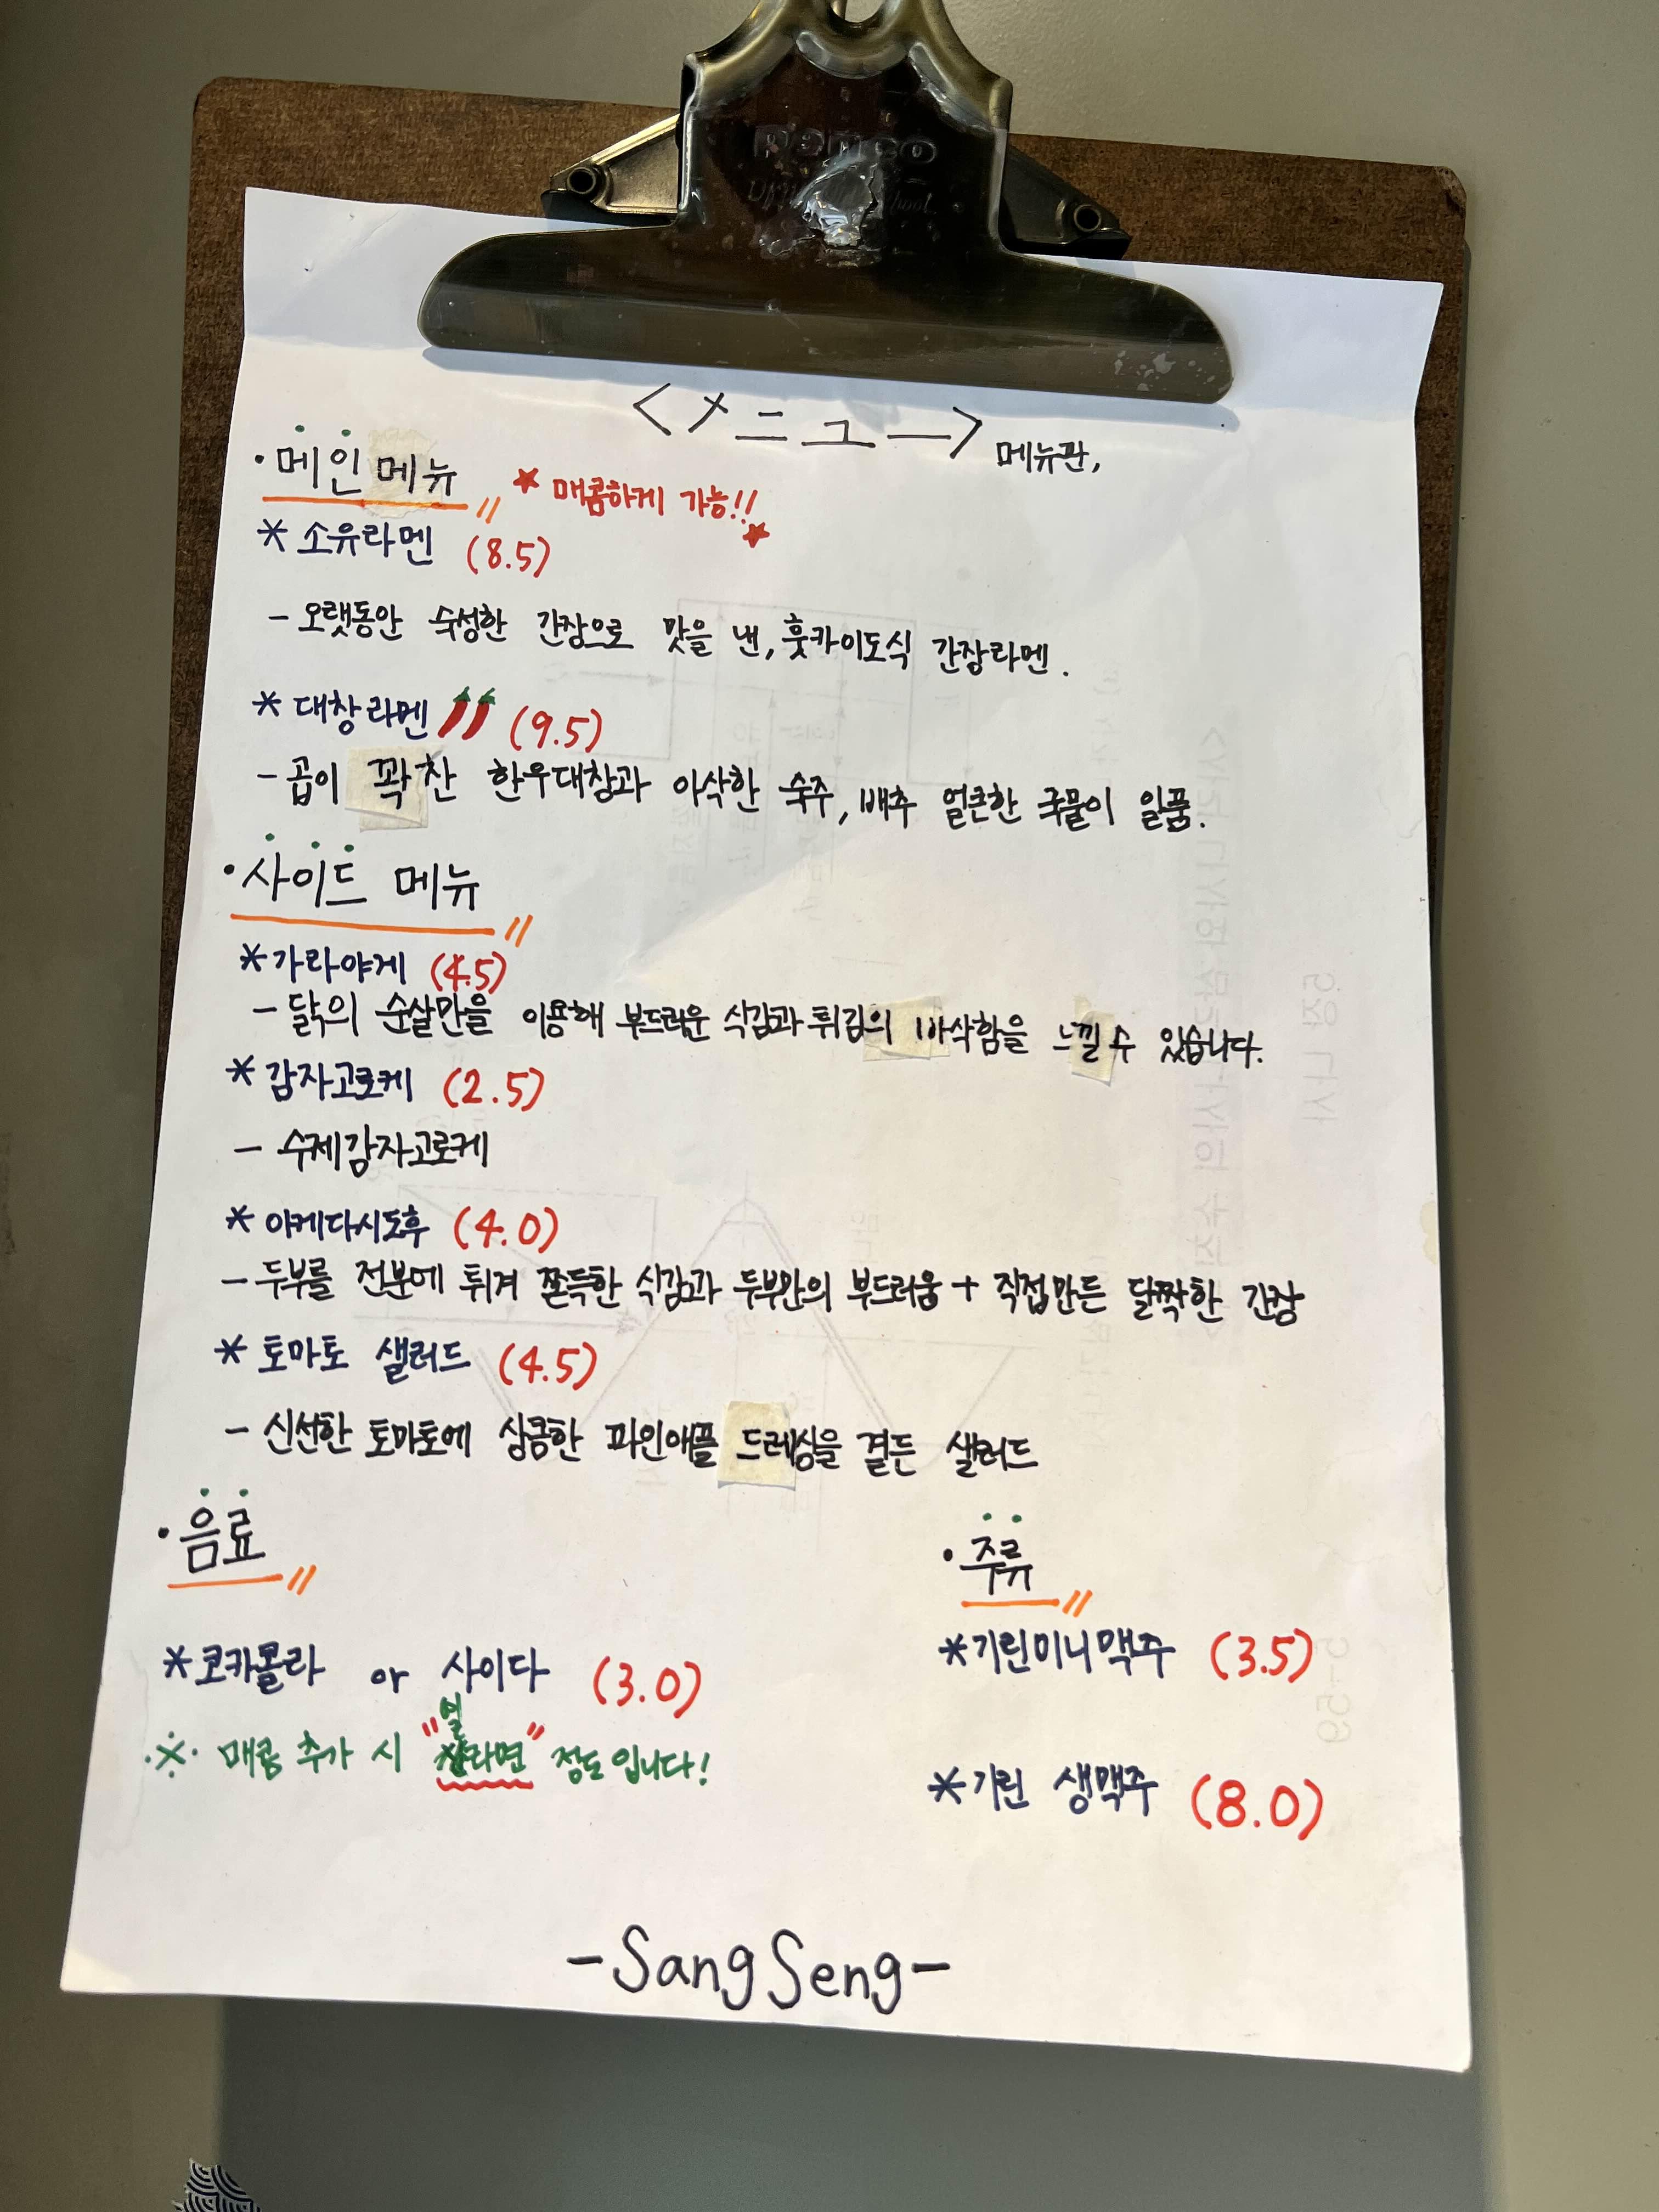 <メニュー> 메뉴판,
·메인메뉴 ★ 매콤하게 가능!! ★
* 소유라멘 (8.5)
- 오랫동안 숙성한 간장으로 맛을 낸, 훗카이도식 간장라멘.
* 대창라멘 (9.5)
- 곱이 꽉찬 한우대창과 아삭한 숙주, 배추 얼큰한 국물이 일품.
·사이드 메뉴
* 가라아게 (4.5)
- 닭의 순살만을 이용해 부드러운 식감과 튀김의 바삭함을 느낄 수 있습니다.
* 감자고로케 (2.5)
- 수제감자고로케
* 아게다시도후 (4.0)
- 두부를 전분에 튀겨 쫀득한 식감과 두부만의 부드러움 + 직접만든 달짝한 간장
* 토마토 샐러드 (4.5)
- 신선한 토마토에 상콤한 파인애플 드레싱을 곁든 샐러드
·음료
* 코카콜라 or 사이다 (3.0)
※ 매콤 추가 시 "열라면" 정도 입니다!
·주류
* 기린미니맥주 (3.5)
* 기린 생맥주 (8.0)
-Sang Seng-